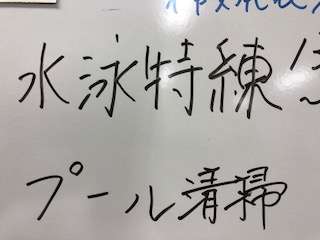 水泳特練
プール清掃